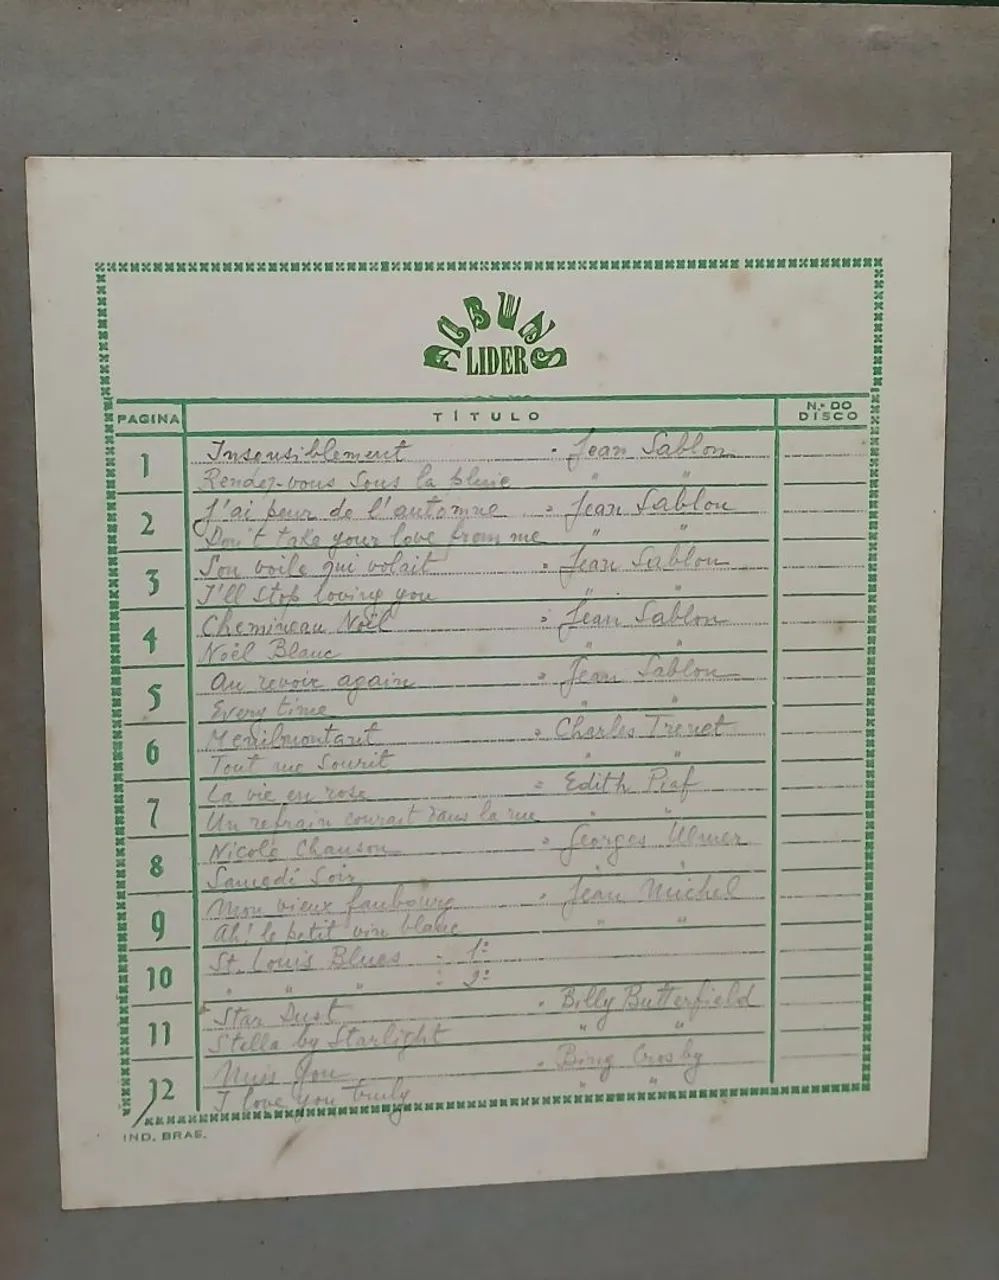 ALBUNS
LIDER
PAGINA TÍTULO N.º DO DISCO
1 Insensiblement - Jean Sablon
Rendez-vous sous la pluie " "
2 J'ai peur de l'automne - Jean Sablon
Don't take your love from me " "
3 Son voile qui volait - Jean Sablon
I'll stop loving you " "
4 Chemineau Noël - Jean Sablon
Noël Blanc " "
5 Au revoir again - Jean Sablon
Every time " "
6 Menilmontant - Charles Trenet
Tout me sourit " "
7 La vie en rose - Edith Piaf
Un refrain courait dans la rue " "
8 Nicole Chanson - Georges Ulmer
Samedi Soir "
9 Mon vieux faubourg - Jean Michel
Ah! le petit vin blanc " "
10 St. Louis Blues - 1º
" " " : 2º
11 Star Dust - Billy Butterfield
Stella by Starlight " "
12 You - Bing Crosby
I love you truly " "
IND. BRAS.